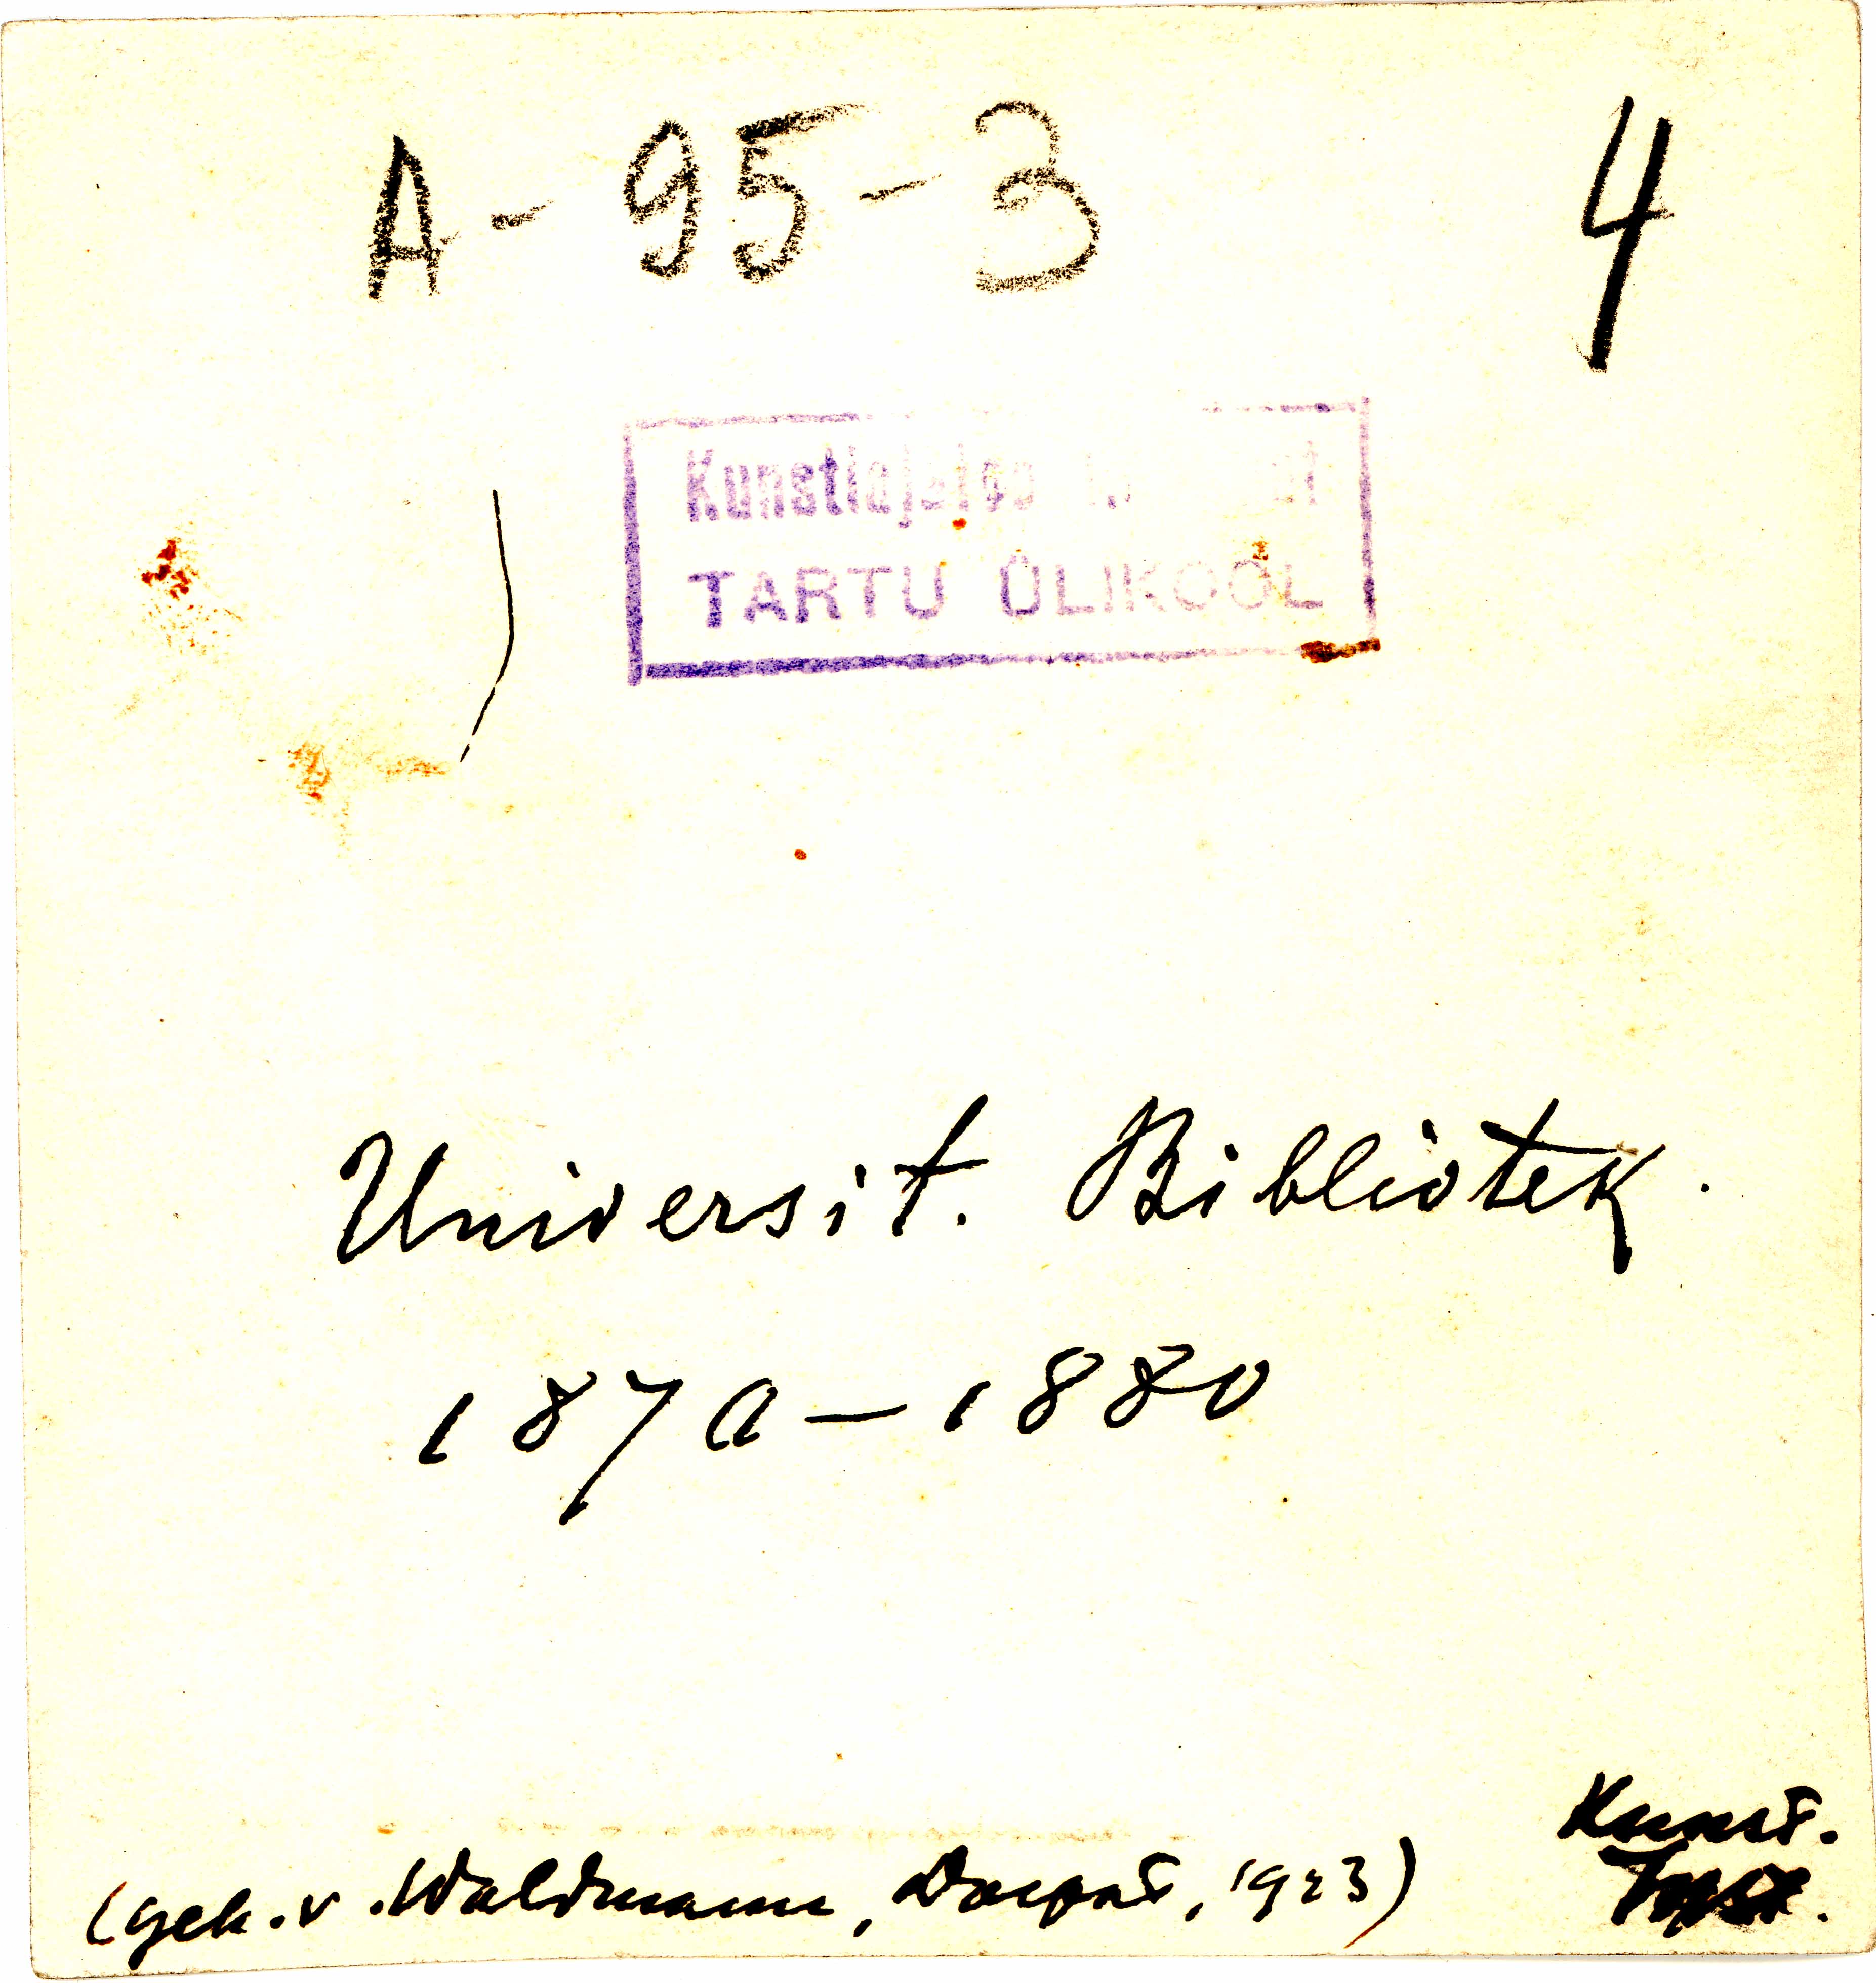 A-95-3 4
Kunstiajaloo
TARTU ÜLIKOOL
Universit. Bibliotek.
1870-1880
Kunst.
(gek. v. Waldmann, Dorpat, 1923)